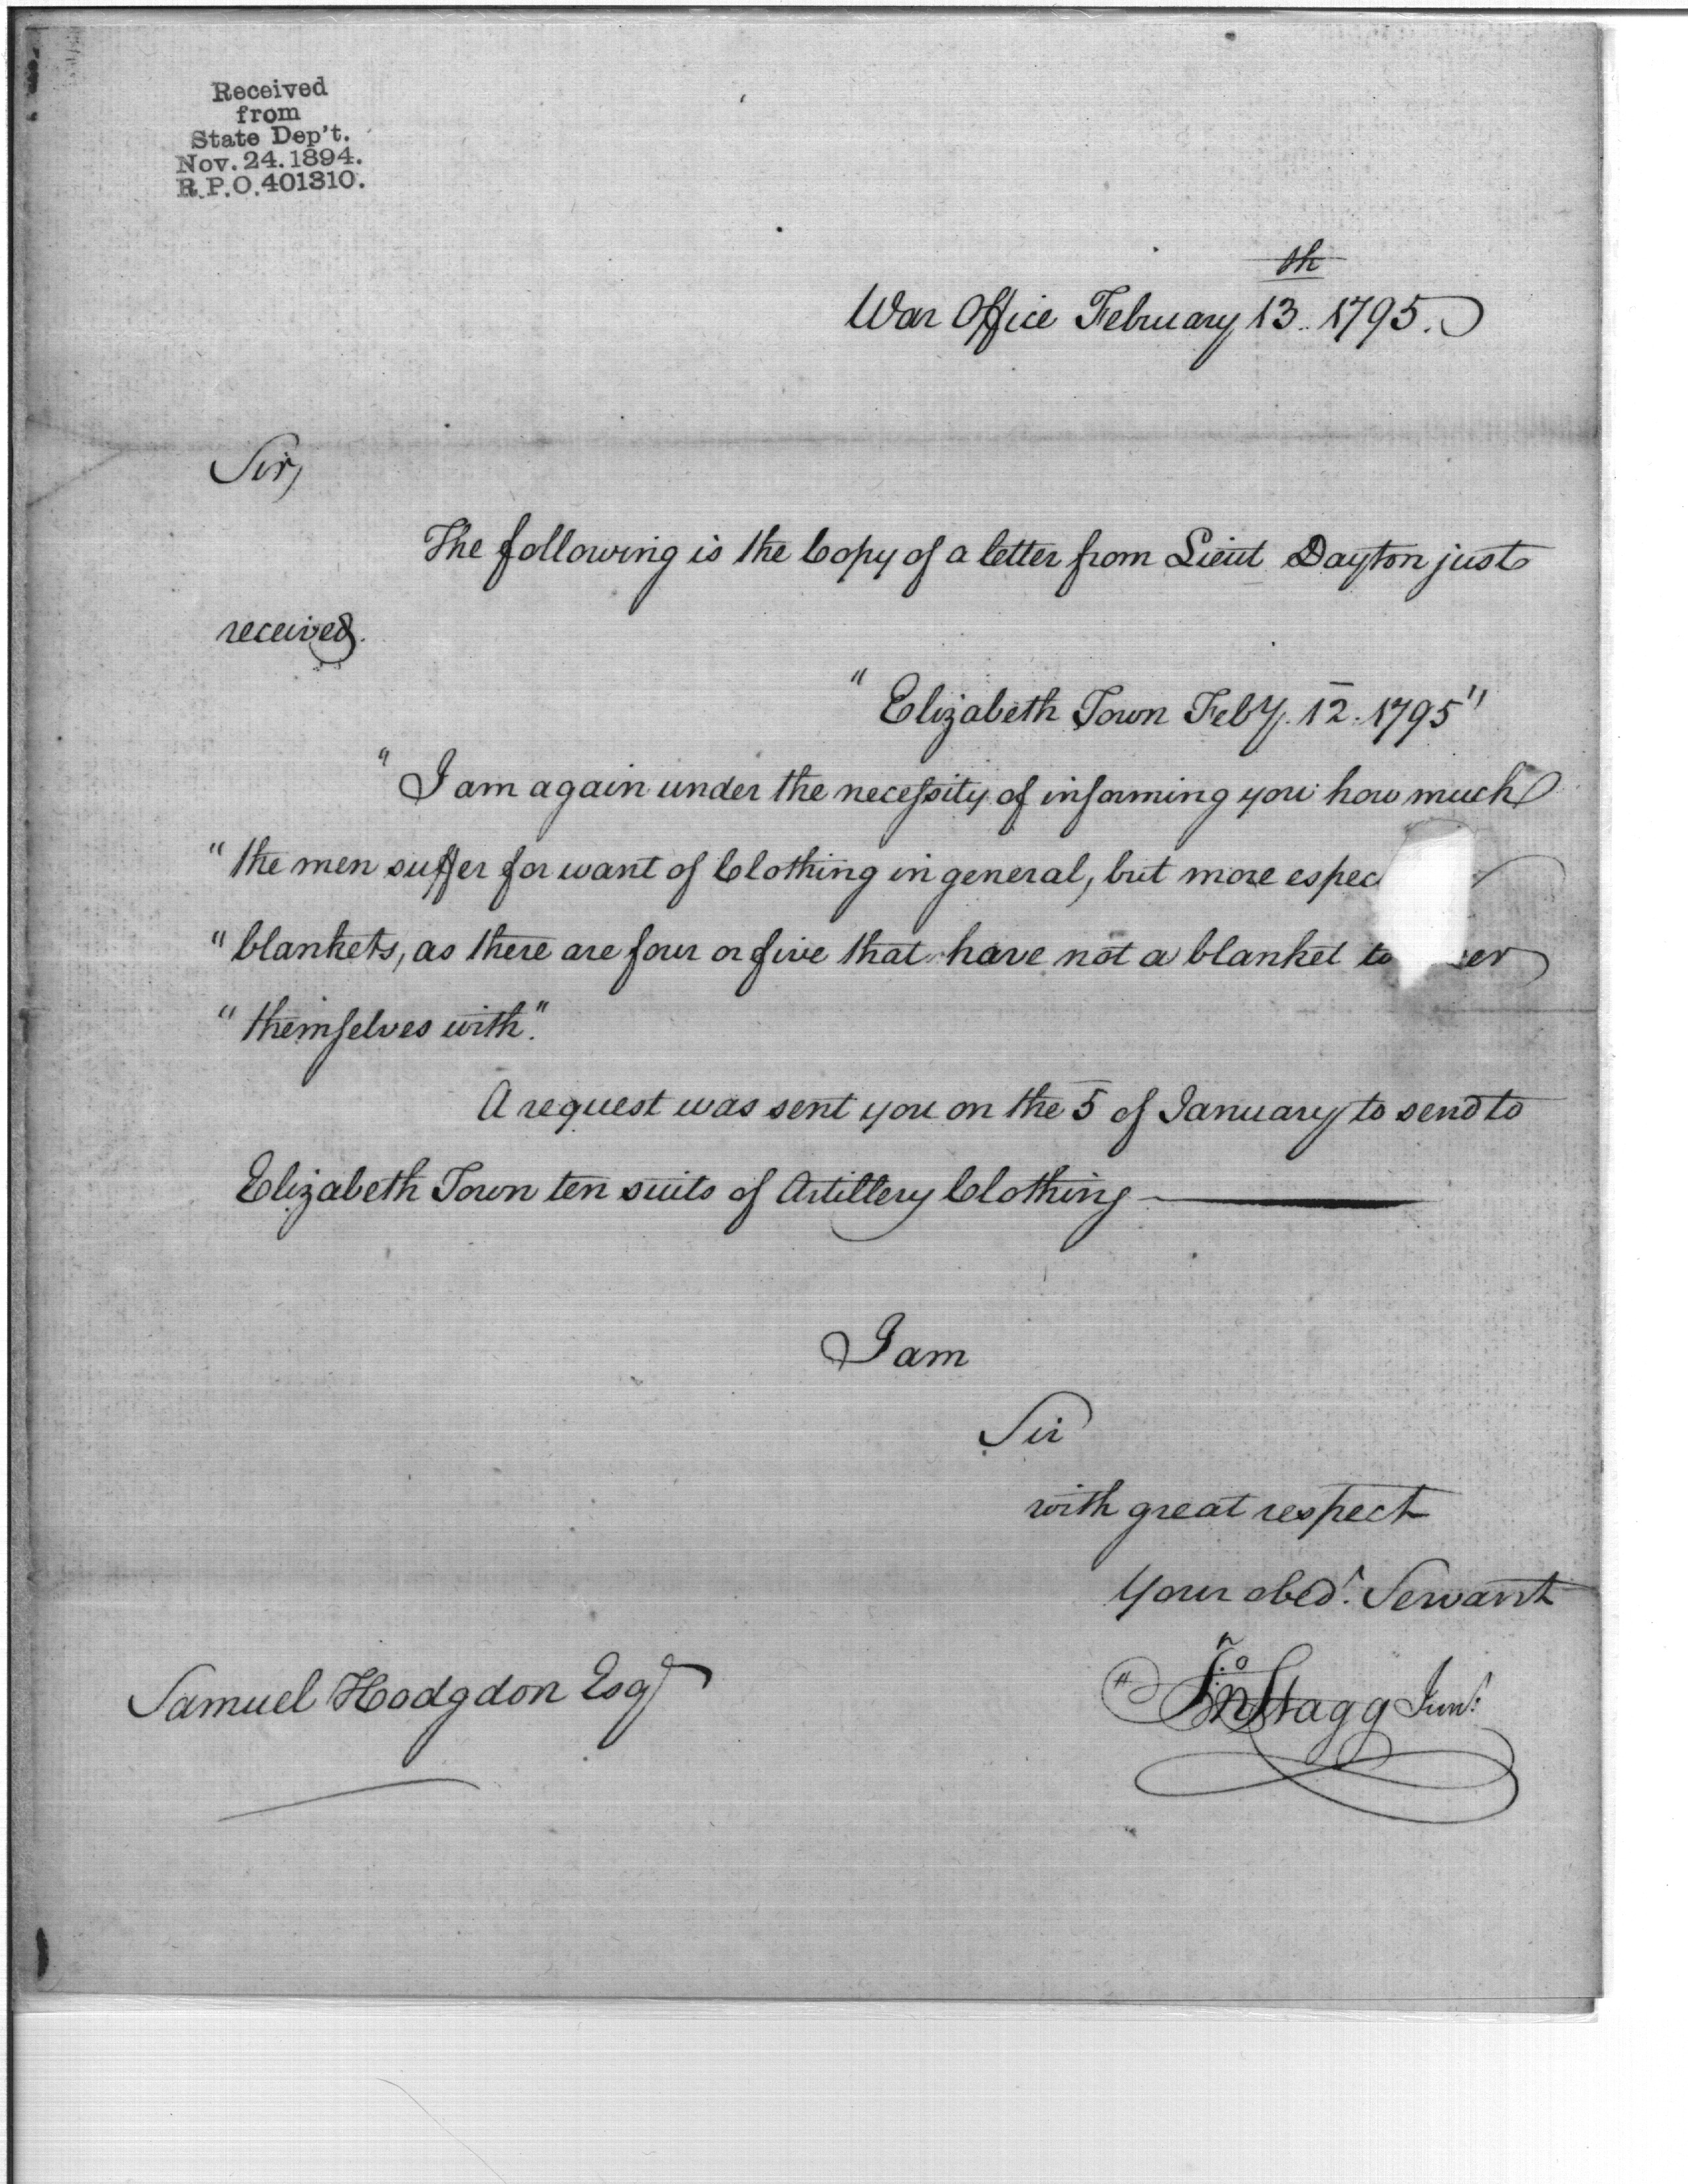 Received
from
State Dep't.
Nov. 24. 1894.
R.P.O. 401310.
War Office February 13th 1795.
Sir,
The following is the Copy of a letter from Lieut Dayton just
received.
"Elizabeth Town Feby. 12. 1795"
"I am again under the necessity of informing you how much
"the men suffer for want of Clothing in general, but more espec
"blankets, as there are four or five that have not a blanket to er
"themselves with."
A request was sent you on the 5 of January to send to
Elizabeth Town ten suits of Artillery Clothing
I am
Sir
with great respect
Your obedt. Servant
Jno Stagg Junr.
Samuel Hodgdon Esqr